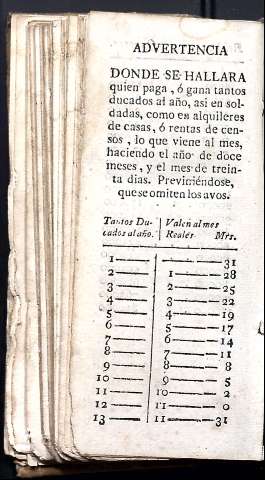 ADVERTENCIA
DONDE SE HALLARA
quien paga, ó gana tantos
ducados al año, asi en sol-
dadas, como en alquileres
de casas, ó rentas de cen-
sos, lo que viene al mes,
haciendo el año de doce
meses, y el mes de trein-
ta dias. Previniéndose,
que se omiten los avos.
Tantos Du- Valen al mes
cados al año. Reales Mrs.
1 31
2 1 28
3 2 25
4 3 22
5 4 19
6 5 17
7 6 14
8 7 11
9 8 8
10 9 5
11 10 2
12 11 0
13 11 31